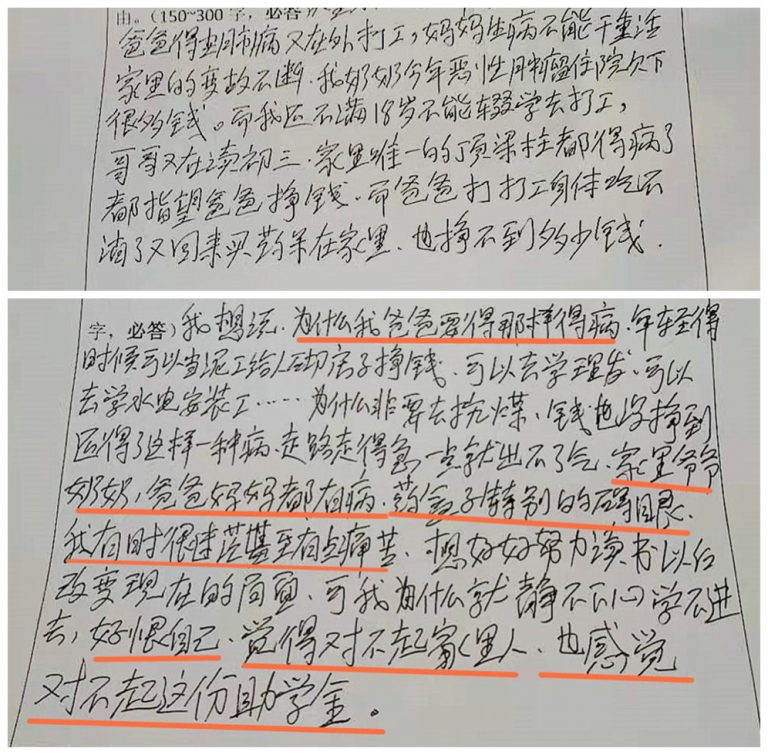 由。（150~300字，必答）
爸爸得肺病又在外打工，妈妈生病不能干重活
家里的变故不断.我奶奶今年恶性肿瘤住院欠下
很多钱。而我还不满18岁不能辍学去打工，
哥哥又在读初三.家里唯一的顶梁柱都得病了
都指望爸爸挣钱.而爸爸打打工身体吃不
消了又回来买药呆在家里.也挣不到多少钱.
字，必答）我想说.为什么我爸爸要得那样得病.年轻得
时候可以当泥工给人砌房子挣钱.可以去学理发.可以
去学水电安装工……为什么非要去挖煤.钱也没挣到
还得了这样一种病.走路走得急一点就出不了气.家里爷爷
奶奶，爸爸妈妈都有病.药盒子特别的碍眼.
我有时很迷茫甚至有点痛苦.想好好努力读书以后
改变现在的局面.可我为什么就静不下心学不进
去，好恨自己.觉得对不起家里人.也感觉
对不起这份助学金。